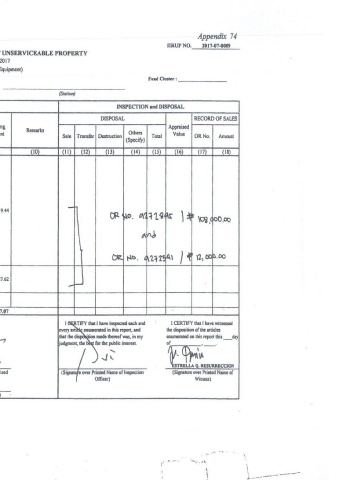 Appendix 74
IIRUP NO. 2017-07-0089
UNSERVICEABLE PROPERTY
2017
Equipment)
Fund Cluster :
(Station)
INSPECTION and DISPOSAL
DISPOSAL
RECORD OF SALES
Remarks
Sale
Transfer
Destruction
Others (Specify)
Total
Appraised Value
OR No.
Amount
(10)
(11)
(12)
(13)
(14)
(15)
(16)
(17)
(18)
9.44
OR No. 9272895 / ₱ 108,000.00
and
OR No. / ₱ 12,000.00
7.07
I CERTIFY that I have inspected each and
every article enumerated in this report, and
that the disposition made thereof was, in my
judgment, the best for the public interest.
(Signature over Printed Name of Inspection
Officer)
I CERTIFY that I have witnessed
the disposition of the articles
enumerated on this report this ___day
of
ESTRELLA Q. RESURRECCION
(Signature over Printed Name of
Witness)